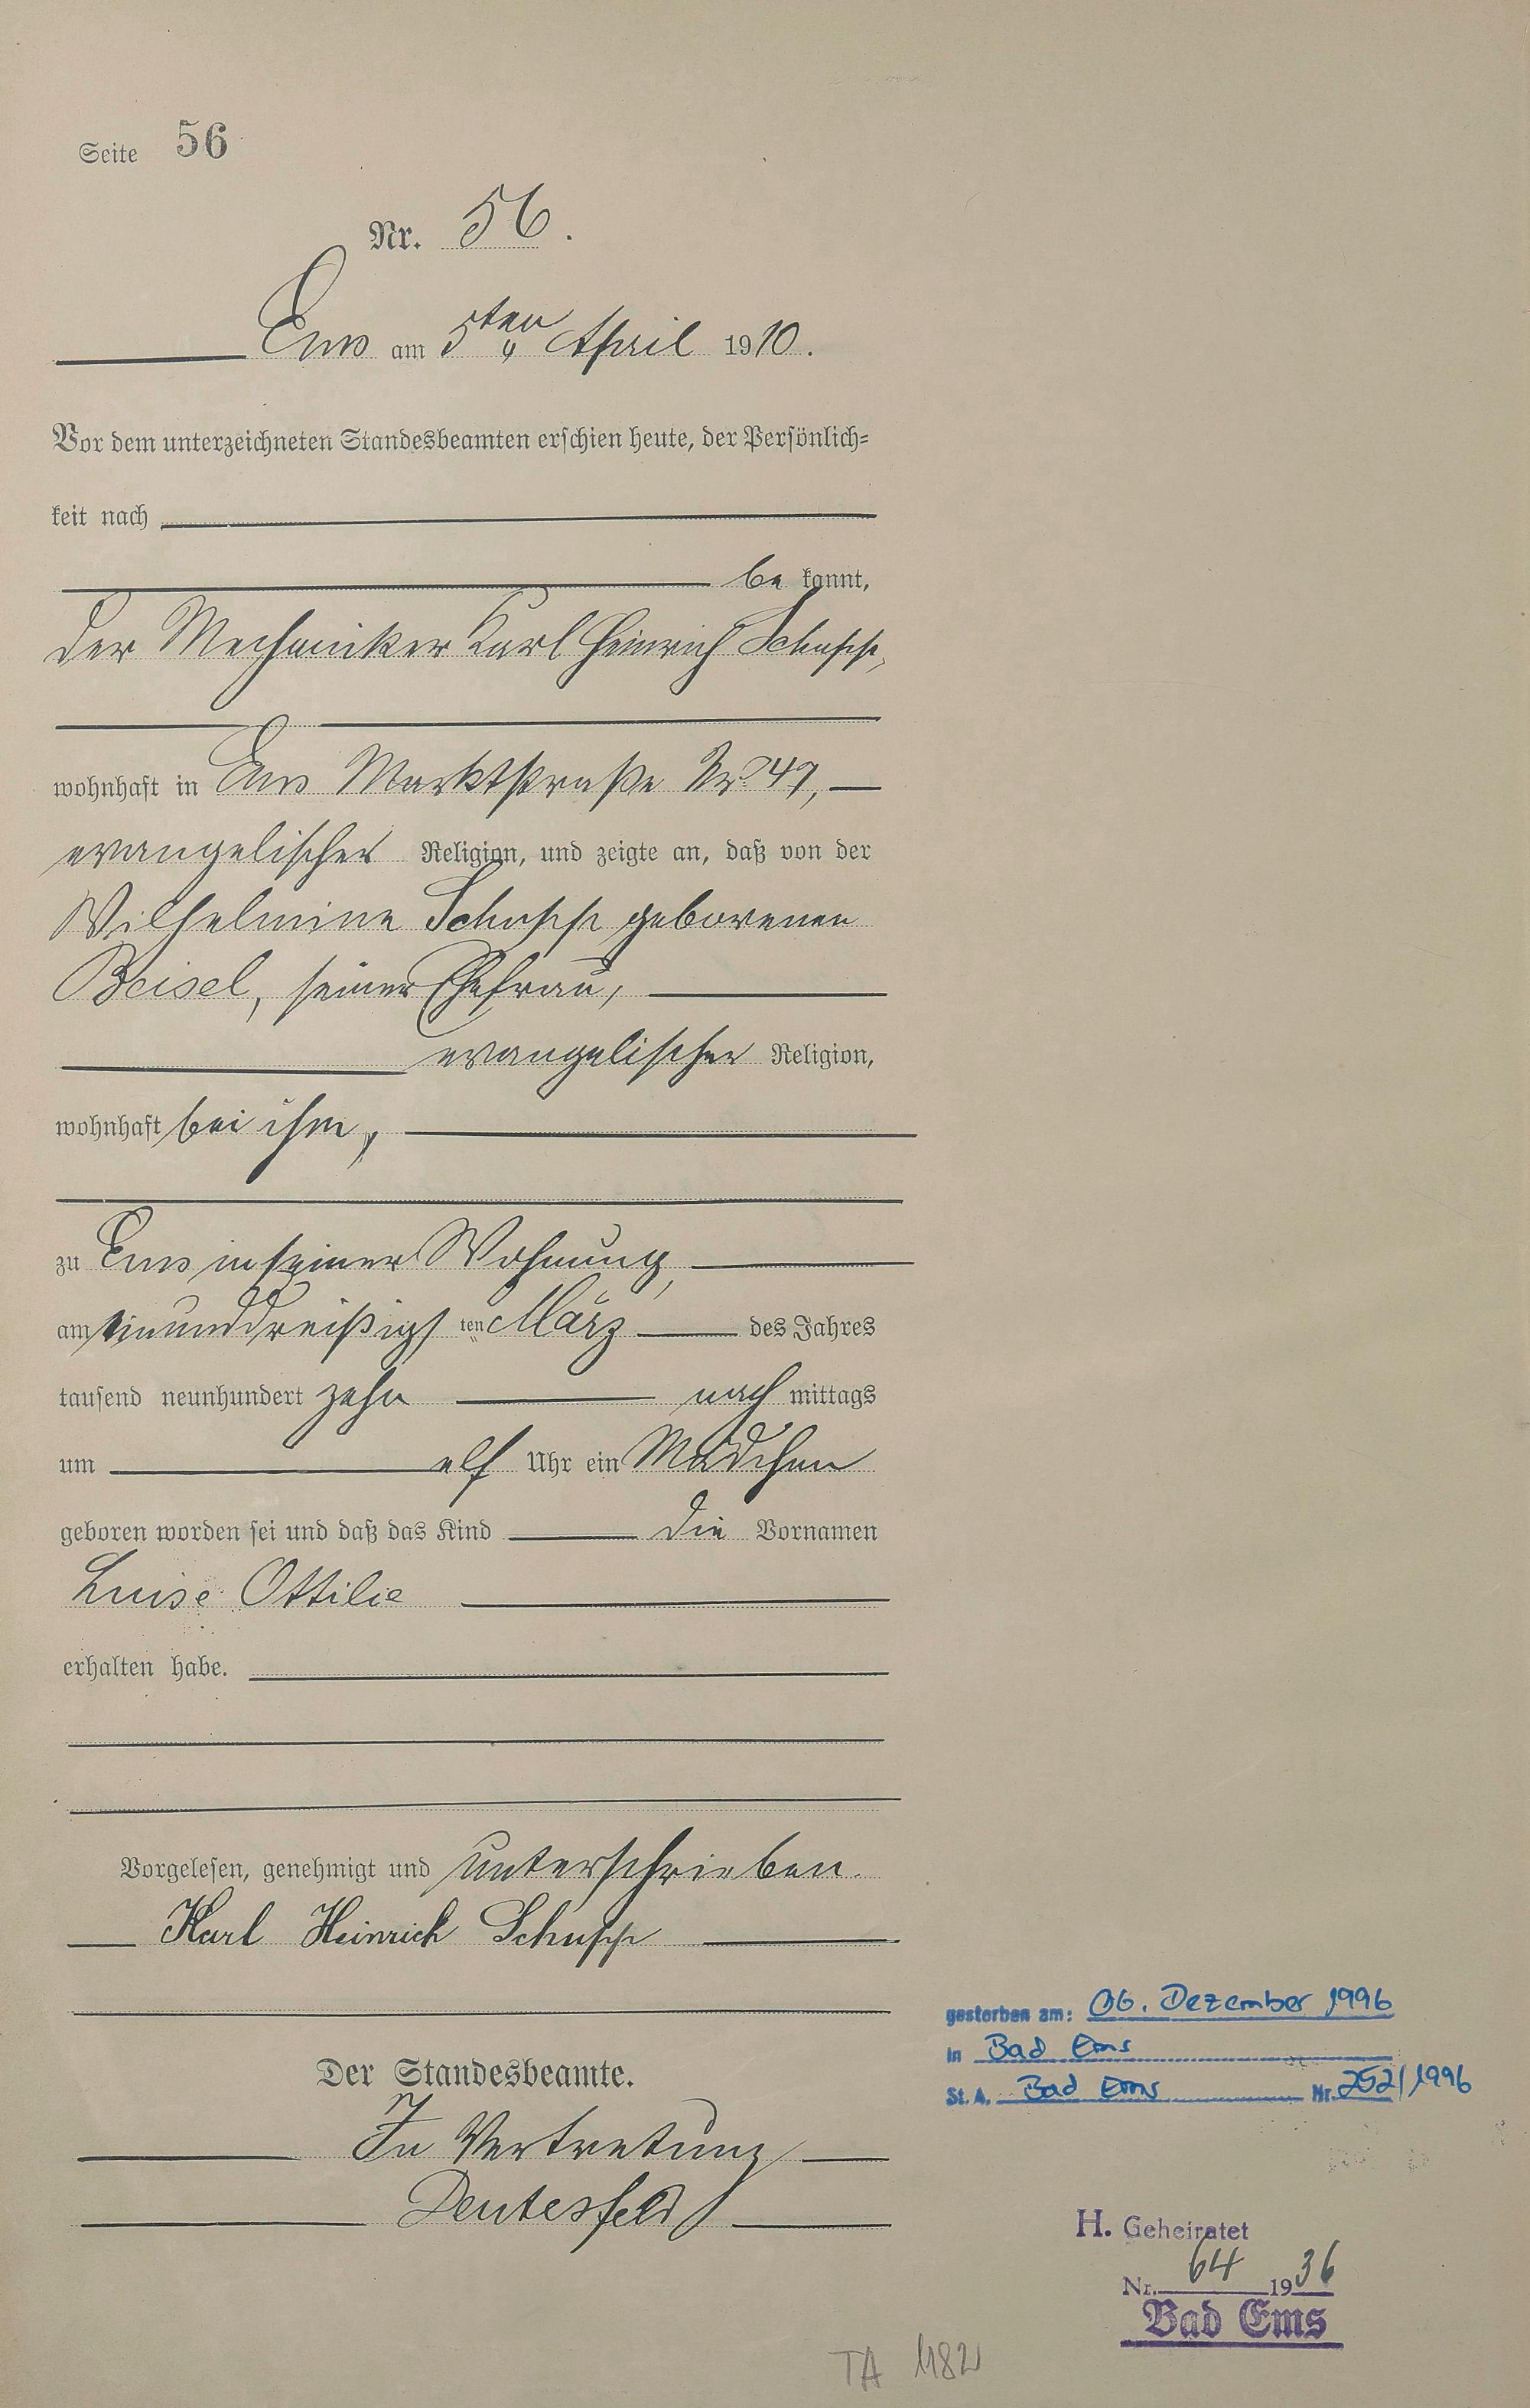 Seite 56
Nr. 56.
Ems am 5ten April 1910.
Vor dem unterzeichneten Standesbeamten erschien heute, der Persönlich=
keit nach
be kannt,
der Mechaniker Karl Heinrich Schupp,
wohnhaft in Ems Marktstraße No. 47,
evangelischer Religion, und zeigte an, daß von der
Wilhelmine Schupp geborenen
Beisel, seiner Ehefrau,
evangelischer Religion,
wohnhaft bei ihm,
zu Ems in seiner Wohnung,
am einunddreißigs ten März des Jahres
tausend neunhundert zehn nach mittags
um elf Uhr ein Mädchen
geboren worden sei und daß das Kind die Vornamen
Luise Ottilie
erhalten habe.
Vorgelesen, genehmigt und unterschrieben.
Karl Heinrich Schupp
Der Standesbeamte.
In Vertretung
Deutesfeld
gestorben am: 06. Dezember 1996
in Bad Ems
St. A. Bad Ems Nr. 252/1996
H. Geheiratet
Nr. 64 1936
Bad Ems
TA 1182